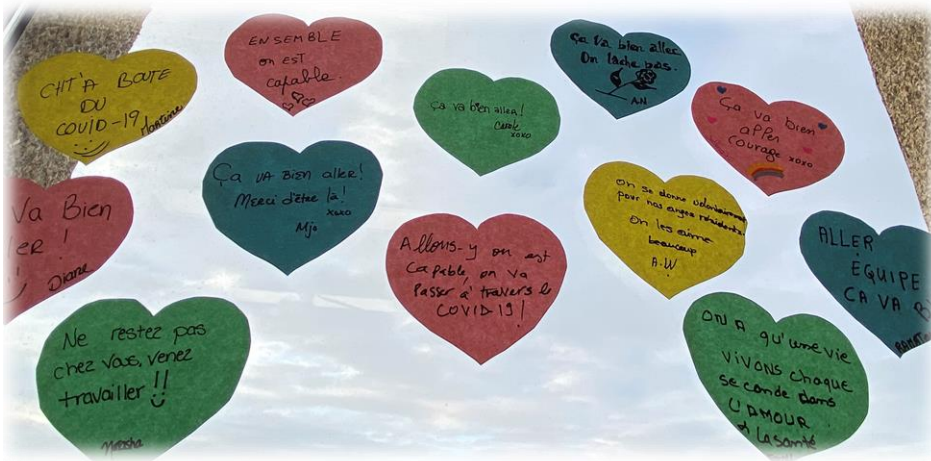 CHT'A BOUTE
DU
COVID-19
Martine
ENSEMBLE
on est
capable.
Ça va bien aller!
Carole
xoxo
Ça va bien aller.
On lâche pas.
A.N
Ça va bien
aller
courage xoxo
Va Bien
ER!
Diane
Ça va bien aller!
Merci d'être là!
xoxo
Mjo
Allons-y on est
capable, on va
Passer à travers le
COVID 19!
On se donne
pour nos anges résidents
On les aime
beaucoup
A.W
ALLER
ÉQUIPE
ÇA VA B
Ne restez pas
chez vous, venez
travailler!!
Natasha
ON A qu'une vie
VIVONS chaque
seconde dans
L'AMOUR
& la santé